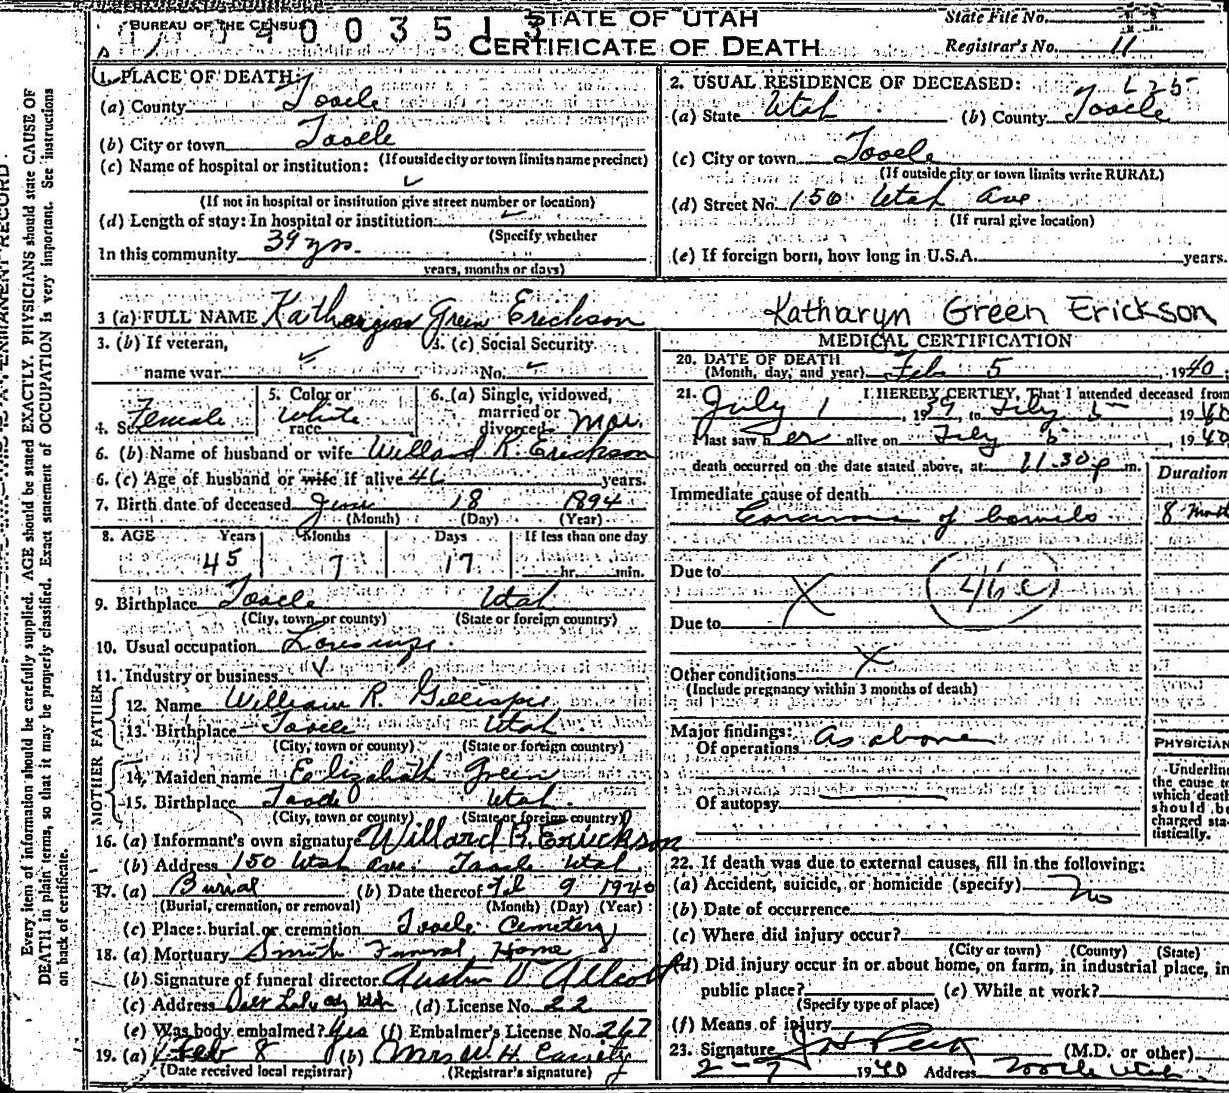 BUREAU OF THE CENSUS
400351
STATE OF UTAH
CERTIFICATE OF DEATH
State File No.
Registrar's No. 11
1. PLACE OF DEATH:
(a) County Tooele
(b) City or town Tooele
(If outside city or town limits name precinct)
(c) Name of hospital or institution:
(If not in hospital or institution give street number or location)
(d) Length of stay: In hospital or institution
(Specify whether
In this community 39 yrs.
years, months or days)
2. USUAL RESIDENCE OF DECEASED:
(a) State Utah (b) County Tooele
(c) City or town Tooele
(If outside city or town limits write RURAL)
(d) Street No. 150 Utah Ave
(If rural give location)
(e) If foreign born, how long in U.S.A. years.
3 (a) FULL NAME Katharyn Green Erickson
Katharyn Green Erickson
3. (b) If veteran,
name war
3. (c) Social Security
No.
4. Sex Female
5. Color or
race White
6. (a) Single, widowed,
married or
divorced Mar.
6. (b) Name of husband or wife Willard R. Erickson
6. (c) Age of husband or wife if alive years.
7. Birth date of deceased June 18 1894
(Month) (Day) (Year)
8. AGE Years Months Days If less than one day
45 7 17 hr. min.
9. Birthplace Tooele Utah
(City, town, or county) (State or foreign country)
10. Usual occupation
11. Industry or business
FATHER
12. Name William R. Gillespie
13. Birthplace Tooele Utah
(City, town or county) (State or foreign country)
MOTHER
14. Maiden name Elizabeth Green
15. Birthplace Tooele Utah
(City, town or county) (State or foreign country)
16. (a) Informant's own signature Willard R. Erickson
(b) Address 150 Utah Ave. Tooele Utah
17. (a) Burial (b) Date thereof Feb 9 1940
(Burial, cremation, or removal) (Month) (Day) (Year)
(c) Place: burial or cremation Tooele Cemetery
18. (a) Mortuary Smith Funeral Home
(b) Signature of funeral director Austin
(c) Address (d) License No. 22
(e) Was body embalmed? Yes (f) Embalmer's License No. 267
19. (a) Feb 8 (b) Mrs. W. H.
(Date received local registrar) (Registrar's signature)
MEDICAL CERTIFICATION
20. DATE OF DEATH
(Month, day, and year) Feb 5, 1940;
21. I HEREBY CERTIFY, That I attended deceased from
July 1, 1939, to Feby 5 1940
I last saw her alive on Feby 5 1940
death occurred on the date stated above, at 11.30 p m.
Duration
Immediate cause of death
Carcinoma of bowels
8 months
Due to
46 c
Due to
Other conditions
(Include pregnancy within 3 months of death)
Major findings:
Of operations As above
Of autopsy
PHYSICIAN
Underline
the cause to
which death
should be
charged sta-
tistically.
22. If death was due to external causes, fill in the following:
(a) Accident, suicide, or homicide (specify) No
(b) Date of occurrence
(c) Where did injury occur?
(City or town) (County) (State)
(d) Did injury occur in or about home, on farm, in industrial place, in
public place? (e) While at work?
(Specify type of place)
(f) Means of injury
23. Signature J H Peck (M.D. or other)
2-7 1940 Address Tooele Utah
Every item of information should be carefully supplied. AGE should be stated EXACTLY. PHYSICIANS should state CAUSE OF
DEATH in plain terms, so that it may be properly classified. Exact statement of OCCUPATION is very important. See instructions
on back of certificate.